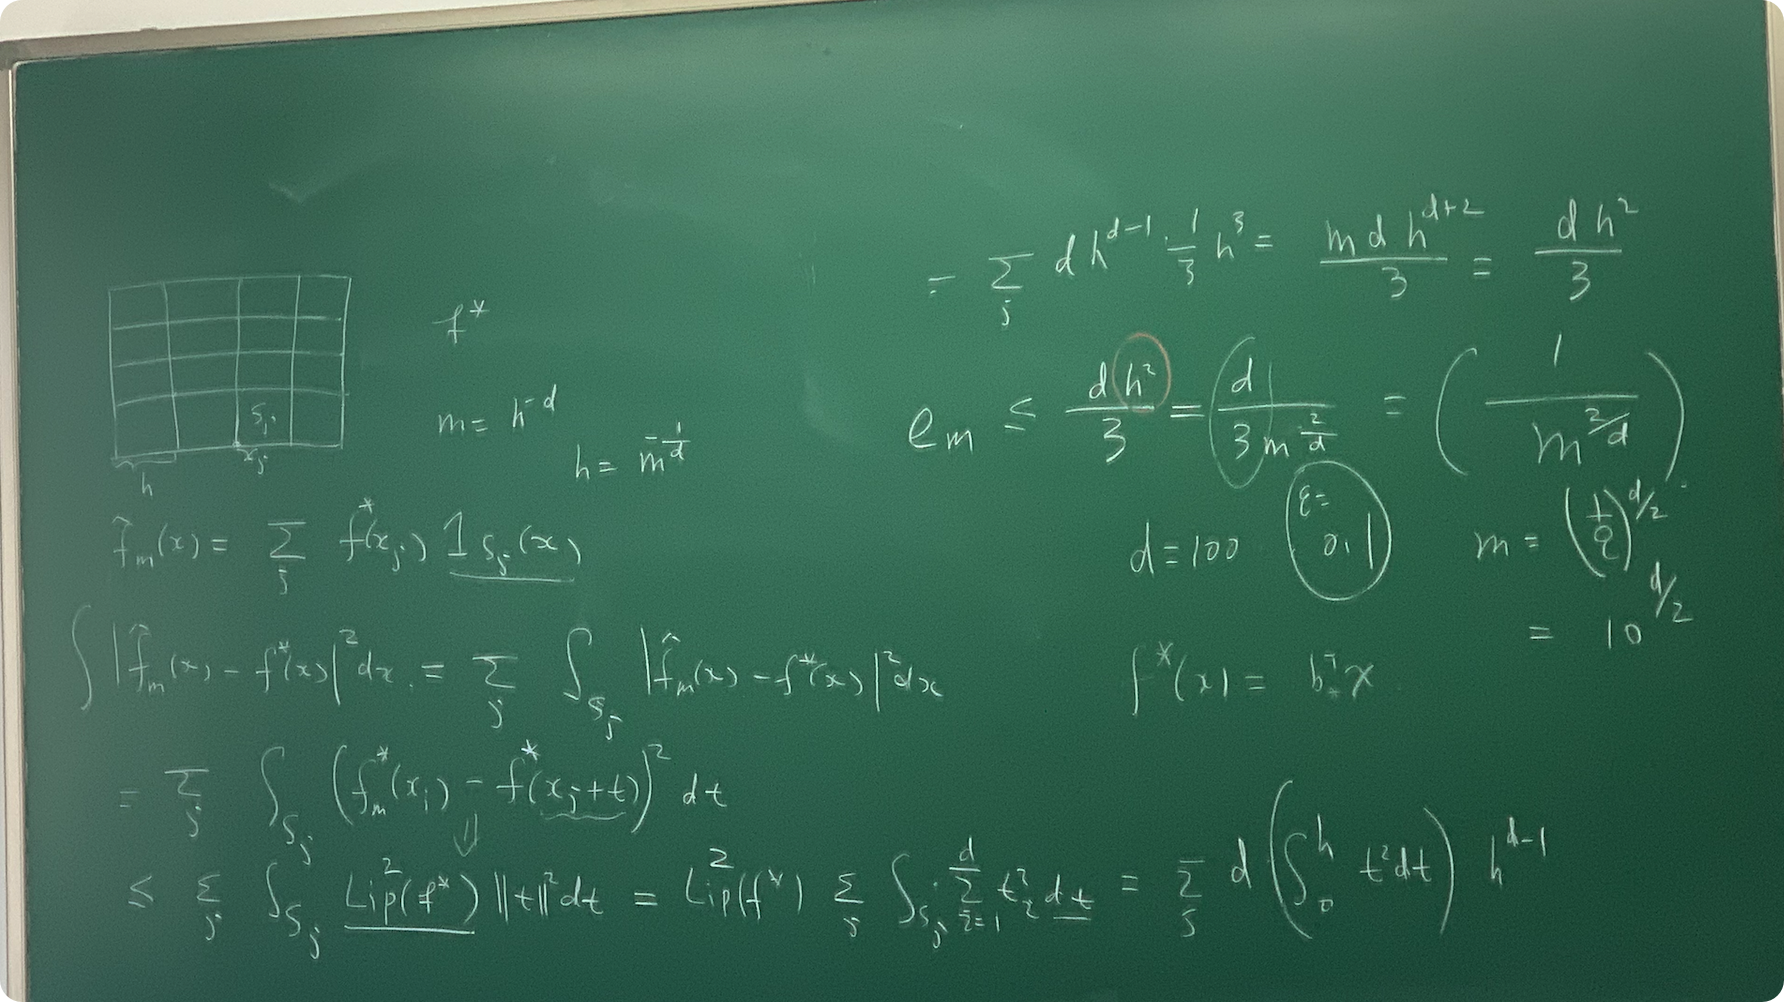 S_j
x_j
h
f*
m = h^{-d}
h = m^{-1/d}
f̂_m(x) = Σ_j f*(x_j) 1_{S_j}(x)
∫ |f̂_m(x) - f*(x)|² dx = Σ_j ∫_{S_j} |f̂_m(x) - f*(x)|² dx
= Σ_j ∫_{S_j} (f*_m(x_j) - f*(x_j + t))² dt
⇓
≤ Σ_j ∫_{S_j} Lip²(f*) ||t||² dt = Lip²(f*) Σ_j ∫_{S_j} Σ_{i=1}^d t_i² dt = Σ_j d (∫_0^h t² dt) h^{d-1}
= Σ_j d h^{d-1} · 1/3 h³ = m d h^{d+2} / 3 = d h² / 3
e_m ≤ d h² / 3 = d / 3 m^{2/d} = ( 1 / m^{2/d} )
d = 100 ε = 0.1 m = (1/ε)^{d/2}
= 10^{d/2}
f*(x) = b^T x